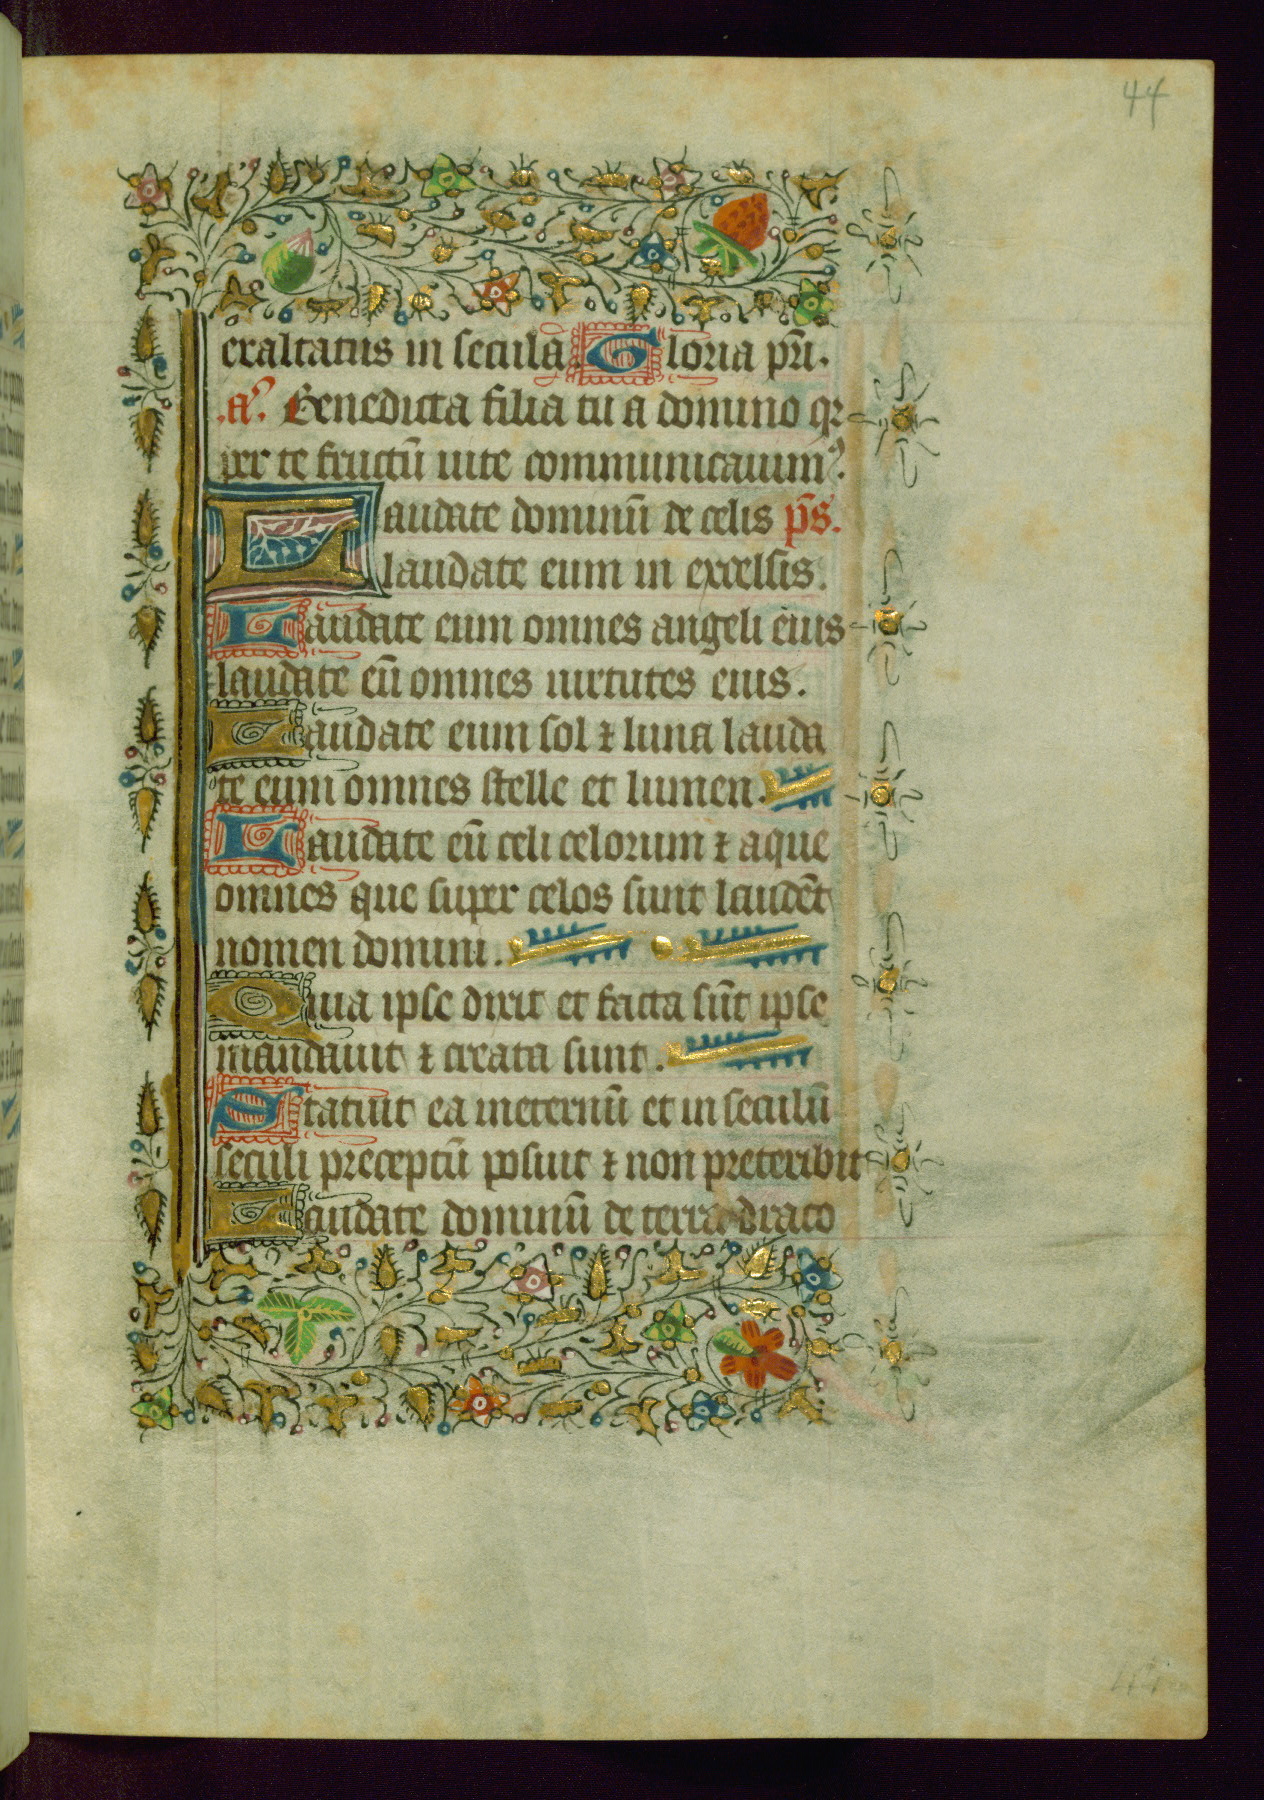 44
exaltatus in secula Gloria pr̄i.
.a᷒. Benedicta filia tu a domino qꝛ
per te fructū uite communicauim᷒.
Laudate dominū de celis p̄s.
laudate eum in excelsis.
Laudate eum omnes angeli eius
laudate eū omnes uirtutes eius.
Laudate eum sol ⁊ luna lauda
te eum omnes stelle et lumen.
Laudate eū celi celorum ⁊ aque
omnes que super celos sunt laudēt
nomen domini.
Quia ipse dixit et facta sūt ipse
mandauit ⁊ creata sunt.
Statuit ea ineternū et in seculū
seculi preceptū posuit ⁊ non preteribit
Laudate dominū de terra draco